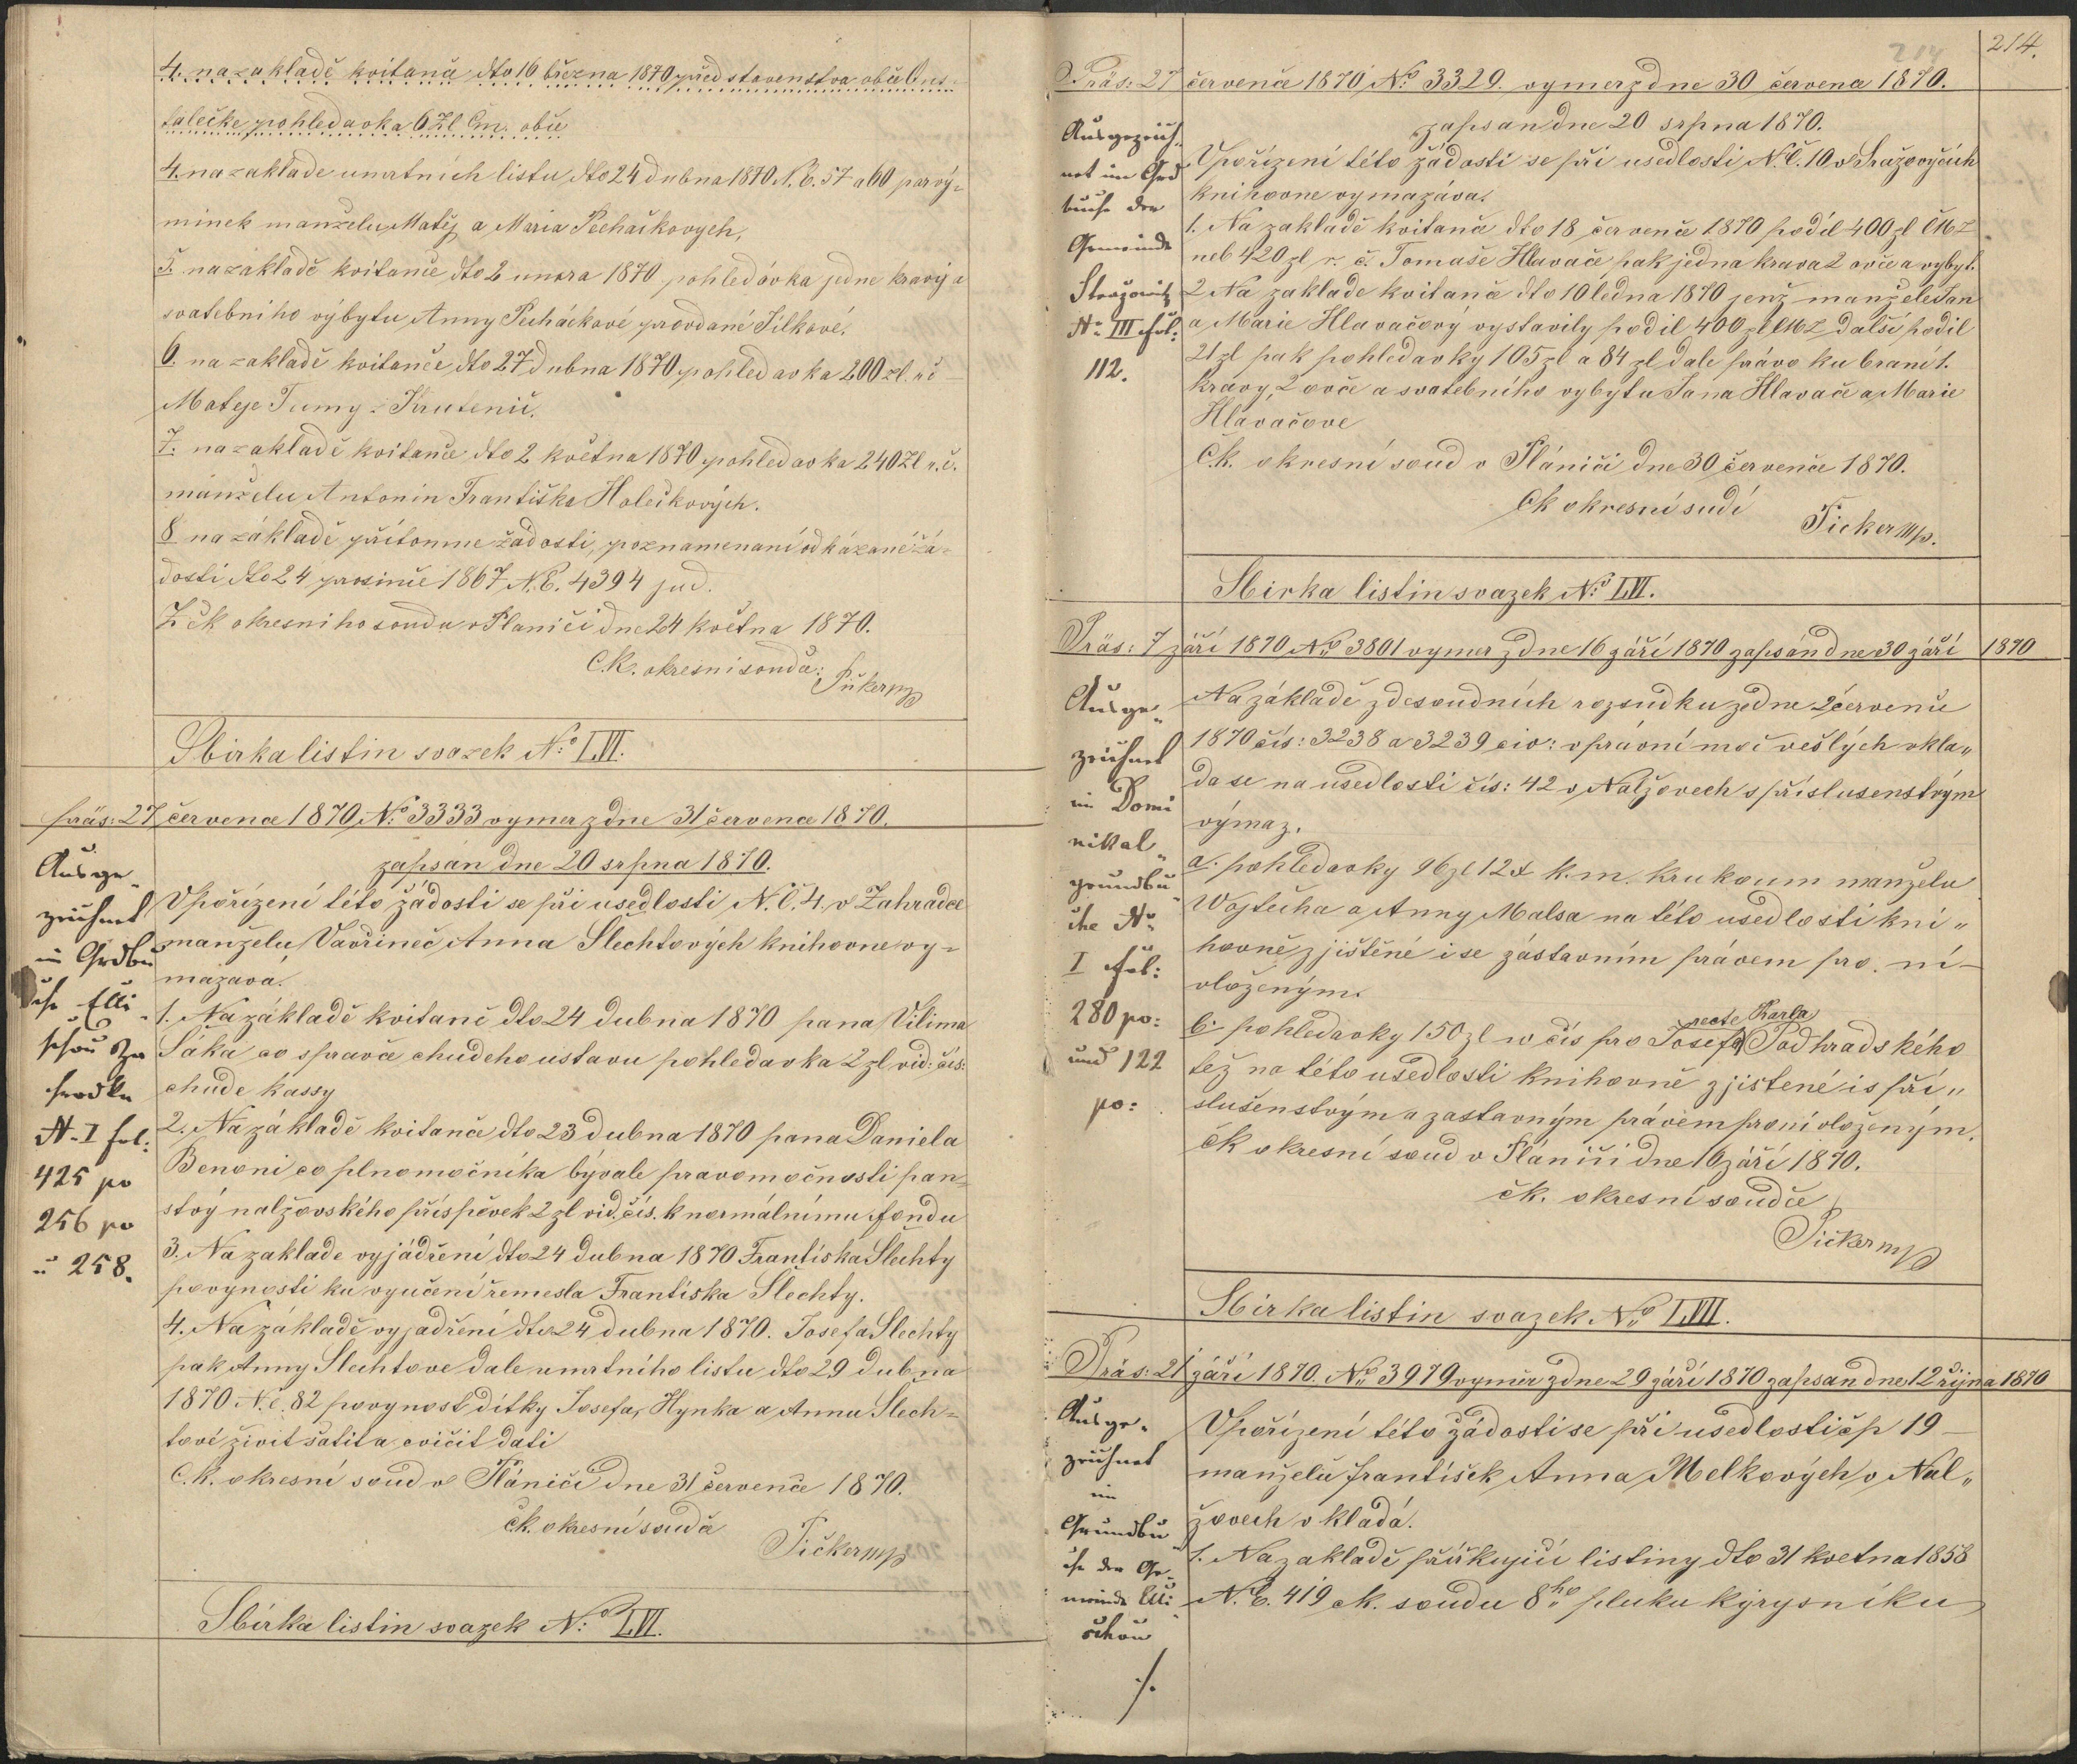 4. na zakladě kvitanči dto 16 března 1870 představenstva obči Ous-
talečke pohledavka 6 Zl Cm. obče
4. na zaklade umrtních listu dto 24 dubna 1870 N. E. 57 a 60 par vý-
minek manželu Matěj a Maria Pechačkovych,
5. na základě kvitanče dto 2 unora 1870 pohledávka jedne kravý a
svatebního výbytu Anny Pecháčkové provdané Šilkové.
6. na zakladě kvitanče dto 27 dubna 1870 pohledavka 200 zl. r č
Mateje Tumy z Krutenič.
7. na zakladě kvitanče dto 2 května 1870 pohledavka 240 Zl r. č.
manželu Antonin Františka Holečkových.
8 na základě přítomne žádosti, poznamenaní odkázané žá-
dosti dto 24 prosinče 1867 N. E. 4394 jud.
Z čk okresního soudu v Planiči dne 24 května 1870.
C. K. okresni souda: Pičker mp
Sbirka listin svazek No LVI.
präs: 27 července 1870 No 3333 vymer z dne 31 července 1870.
zapsán dne 20 srpna 1870.
Ausge-
zeichnet
im Grdbu
che Elli-
schau Za
hradka
N. I fol:
425 po
256 po
u 258.
Vpořízení této žádosti se při usedlosti N. Č. 4. v Zahradce
manželu Vavřineč Anna Šlechtových knihovne vy-
mazava.
1. Na základě kvitanč dto 24 dubna 1870 pana Vilima
Šáka co spravče chudeho ustavu pohledavka 2 zl vid: čís:
chude kassy
2. Na základě kvitanče dto 23 dubna 1870 pana Daniela
Benoni co plnomočníka bývale pravomočnosti pan-
stvý nalžovského příspěvek 2 zl vid. čís. k normálnímu fondu
3. Na zaklade vyjádření dto 24 dubna 1870 Frantiska Šlechty
povynosti ku vyučení řemesla Frantiska Šlechty.
4. Na základě vyjadření dto 24 dubna 1870. Josefa Šlechty
pak Anny Slechtove dale umrtního listu dto 29 dubna
1870 N. č. 82 povynost dítky Josefa, Hynka a Annu Šlech-
tové živit šatit a cvičit dati
C. K. okresní soud v Plániči dne 31 července 1870.
čk. okresní soudče
Pičker mp
Sbírka listin svazek No LVI.
214
214.
Präs: 27 červenče 1870 No 3329. vymer z dne 30 července 1870.
zapsan dne 20 srpna 1870.
Ausgezeich-
net im Grd
buche der
Gemeinde
Strazowitz
No III fol:
112.
Vpořízení této žádosti se při usedlosti N. Č. 10 v Sražovyčích
knihovne vymazává.
1. Na zakladě kvitanče dto 18 července 1870 podíl 400 zl CMZ
neb 420 zl r. č. Tomaše Hlavače pak jedna krava 2 ovče a vybyt.
2 Na zaklade kvitanče dto 10 ledna 1870 jenž manžele Jan
a Marie Hlavačový vystavily podil 400 zl CMZ další podíl
21 zl pak pohledavky 105 zl a 84 zl dale právo ku braní 1.
kravy, 2 ovče a svatebního vybytu Jana Hlavače a Marie
Hlavačove
C. K. okresní soud v Plániči dne 30 červenče 1870.
Ck okresní sudí
Picker mp.
Sbirka listin svazek No LVI.
Präs: 7 září 1870 No 3801 vymer z dne 16 září 1870 zapsán dne 30 září 1870
Ausge-
zeichnet
im Domi
nikal-
grundbu
che No
I fol:
280 po:
und 122
po:
Na základě zdesoudních rozsudku ze dne 2 červenče
1870 čís: 3238 a 3239 civ: v právní moč vešlých vkla-
da se na usedlosti čís: 42 v Nalžovech s příslusenstvým
výmaz.
a. pohledavky 96 zl 12 x k. m. krukoum manželu
Wojtěcha a Anny Malsa na této usedlosti kni-
hovně zjištěné i se zástavním právem pro ní-
vloženým.
b. pohledavky 150 zl w čís pro Josefa recte Karla Podhradského
též na této usedlosti knihovně zjistené i s pří-
slušenstvým a zastavným právem pro ní vloženým.
ČK okresní soud v Plániči dne 16 září 1870.
čk. okresní soudče
Pičker mp
Sbírka listin svazek No LVII.
Präs: 21 září 1870. No 3979 vymer z dne 29 září 1870 zapsan dne 12 řijna 1870
Ausge-
zeichnet
im
Grundbu
che der Ge-
meinde Elli-
schau
./.
Vpořízení této žádosti se při usedlosti čp 19
manželů František Anna Melkových v Nal-
žovech vkladá.
1. Na zakladě přiřkující listiny dto 31 kvetna 1858
N. E. 419 ck. soudu 8ho pluku kýrysníku